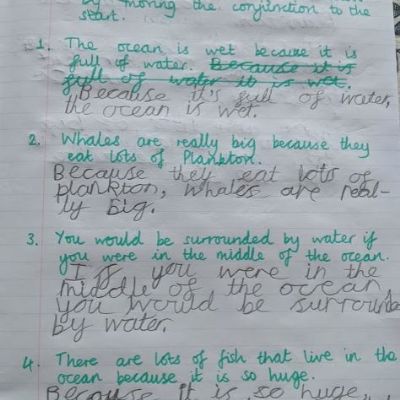 by moving the conjunction to the
start.
1. The ocean is wet because it is
full of water. Because it is
full of water it is wet.
Because it's full of water,
the ocean is wet.
2. Whales are really big because they
eat lots of Plankton.
Because they eat lots of
plankton, whales are real-
ly big.
3. You would be surrounded by water if
you were in the middle of the ocean.
If you were in the
middle of the ocean
you would be surrounded
by water.
4. There are lots of fish that live in the
ocean because it is so huge.
Because it is so huge,